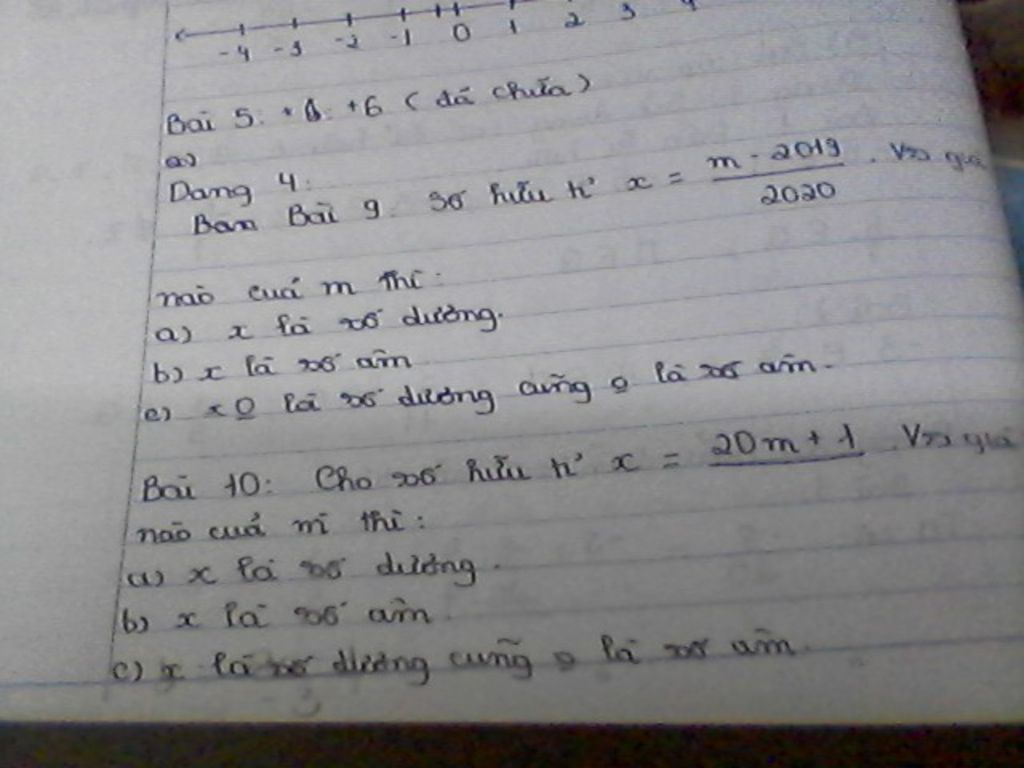 -4 -3 -2 -1 0 1 2 3 4
Bài 5: +6 (đã chữa)
a)
Dạng 4:
Bài 9: Số hữu tỉ x = m - 2019 / 2020 . Với giá
nào của m thì:
a) x là số dương.
b) x là số âm
c) x o là số dương cũng o là số âm.
Bài 10: Cho số hữu tỉ x = 20m + 1 Với giá
nào của m thì:
a) x là số dương.
b) x là số âm.
c) x là số dương cũng o là số âm.